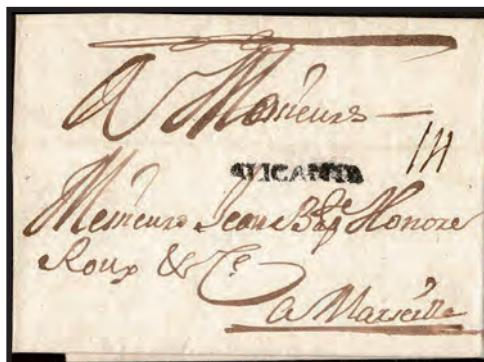 A Messieurs
14
ALICANTE
Messieurs Jean Bte Honoré
Roux & Ce
a Marseille